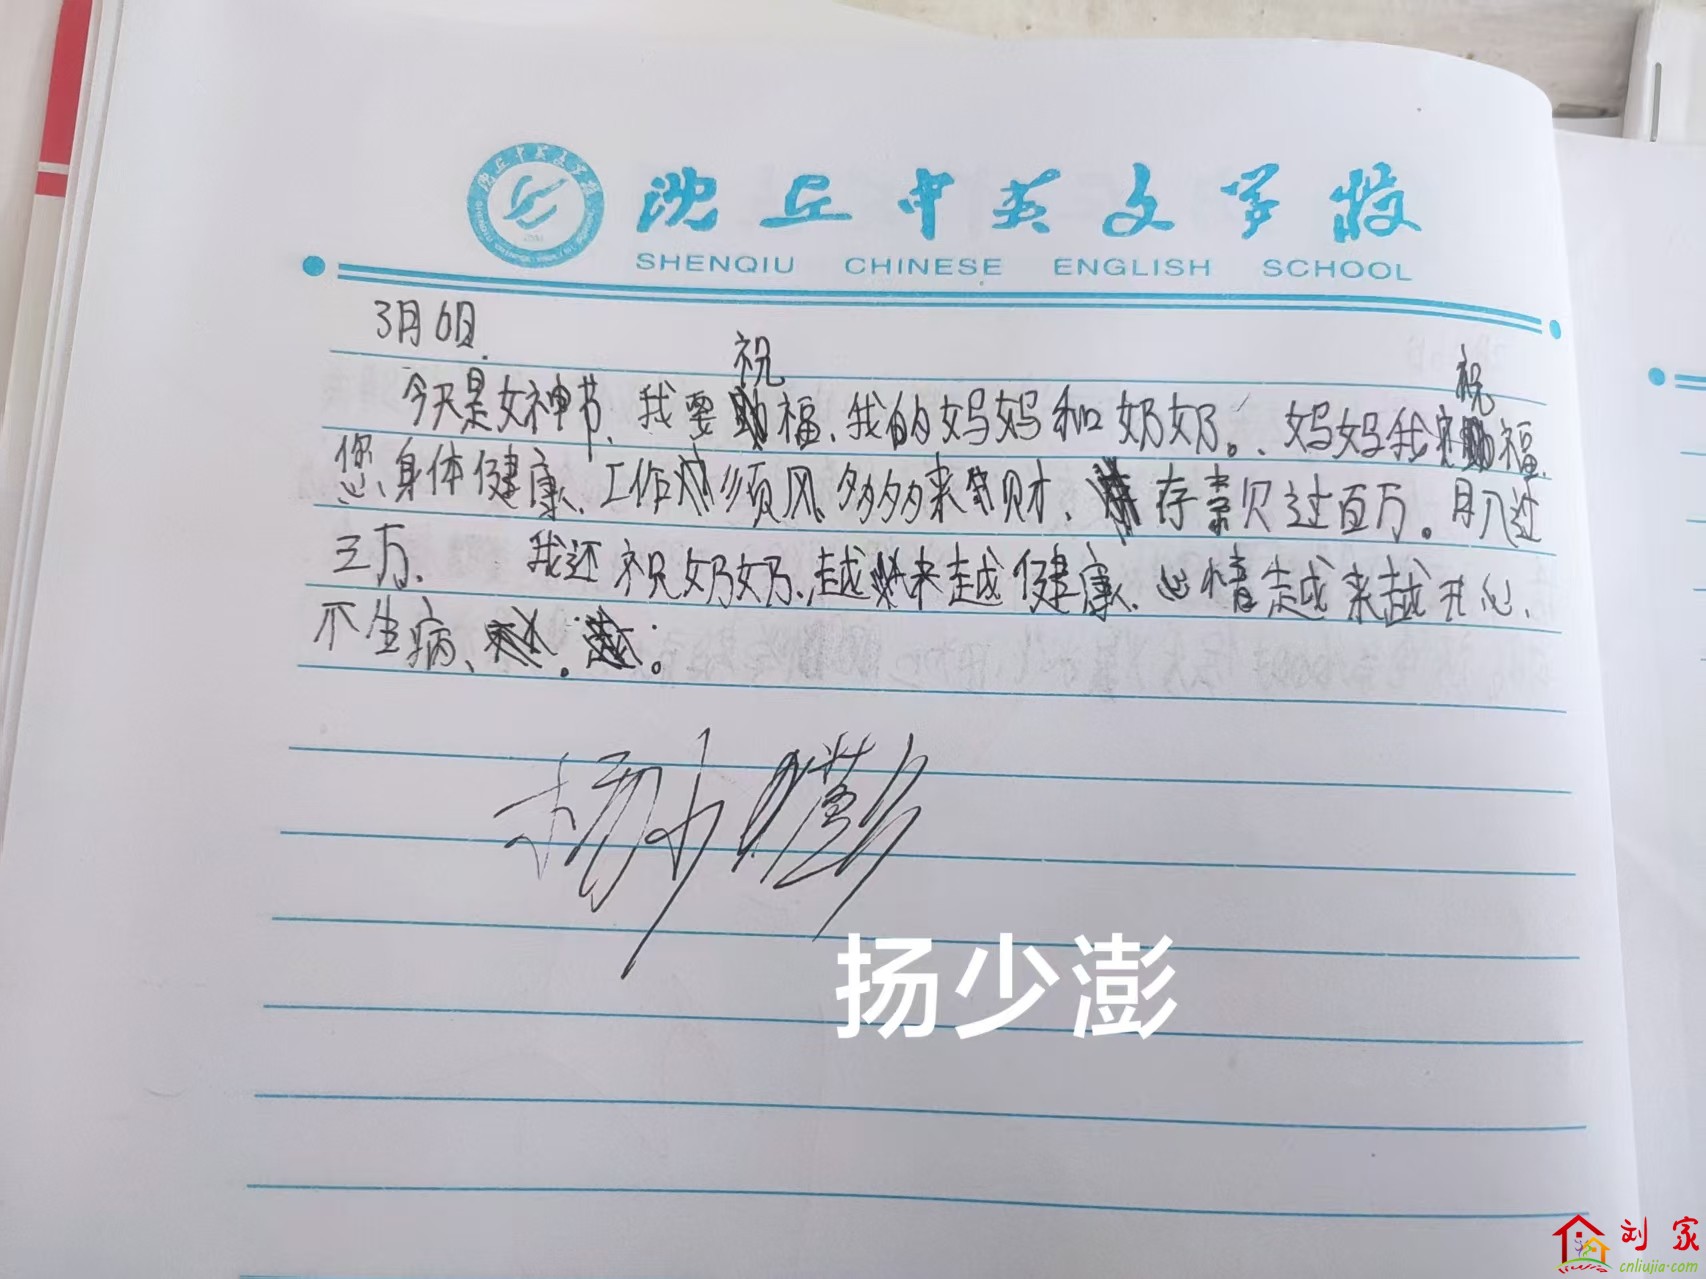 沈丘中英文学校
SHENQIU CHINESE ENGLISH SCHOOL
3月6日.
今天是女神节、我要祝福、我的妈妈和奶奶。、妈妈我祝福、
您、身体健康、工作顺风、多多来财、存款过百万。月入过
三万、我还祝奶奶、越来越健康、心情越来越开心、
不生病、
杨少澎
扬少澎
刘家
cnliujia.com